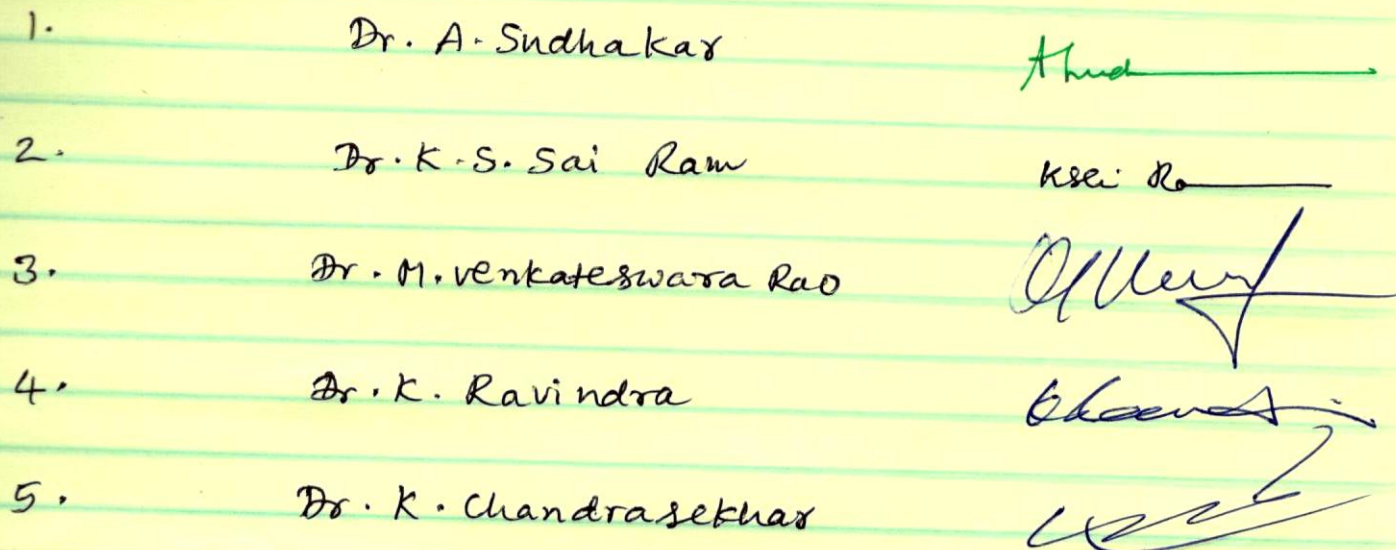 1. Dr. A. Sudhakar
2. Dr. K.S. Sai Ram
3. Dr. M. Venkateswara Rao
4. Dr. K. Ravindra
5. Dr. K. Chandrasekhar